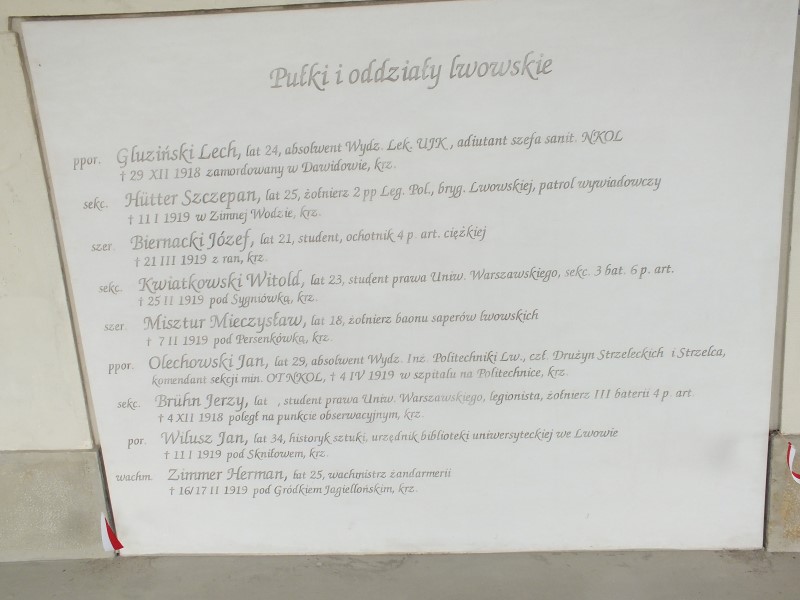 Pułki i oddziały lwowskie
ppor. Gluziński Lech, lat 24, absolwent Wydz. Lek. UJK, adiutant szefa sanit. NKOL
† 29 XII 1918 zamordowany w Dawidowie, krz.
sekc. Hütter Szczepan, lat 25, żołnierz 2 pp Leg. Pol., bryg. Lwowskiej, patrol wywiadowczy
† 11 I 1919 w Zimnej Wodzie, krz.
szer. Biernacki Józef, lat 21, student, ochotnik 4 p. art. ciężkiej
† 21 III 1919 z ran, krz.
sekc. Kwiatkowski Witold, lat 23, student prawa Uniw. Warszawskiego, sekc. 3 bat. 6 p. art.
† 25 II 1919 pod Sygniówką, krz.
szer. Misztur Mieczysław, lat 18, żołnierz baonu saperów lwowskich
† 7 II 1919 pod Persenkówką, krz.
ppor. Olechowski Jan, lat 29, absolwent Wydz. Inż. Politechniki Lw., czł. Drużyn Strzeleckich i Strzelca,
komendant sekcji min. OTNKOL, † 4 IV 1919 w szpitalu na Politechnice, krz.
sekc. Brühn Jerzy, lat , student prawa Uniw. Warszawskiego, legionista, żołnierz III baterii 4 p. art.
† 4 XII 1918 poległ na punkcie obserwacyjnym, krz.
por. Wilusz Jan, lat 34, historyk sztuki, urzędnik biblioteki uniwersyteckiej we Lwowie
† 11 I 1919 pod Skniłowem, krz.
wachm. Zimmer Herman, lat 25, wachmistrz żandarmerii
† 16/17 II 1919 pod Gródkiem Jagiellońskim, krz.